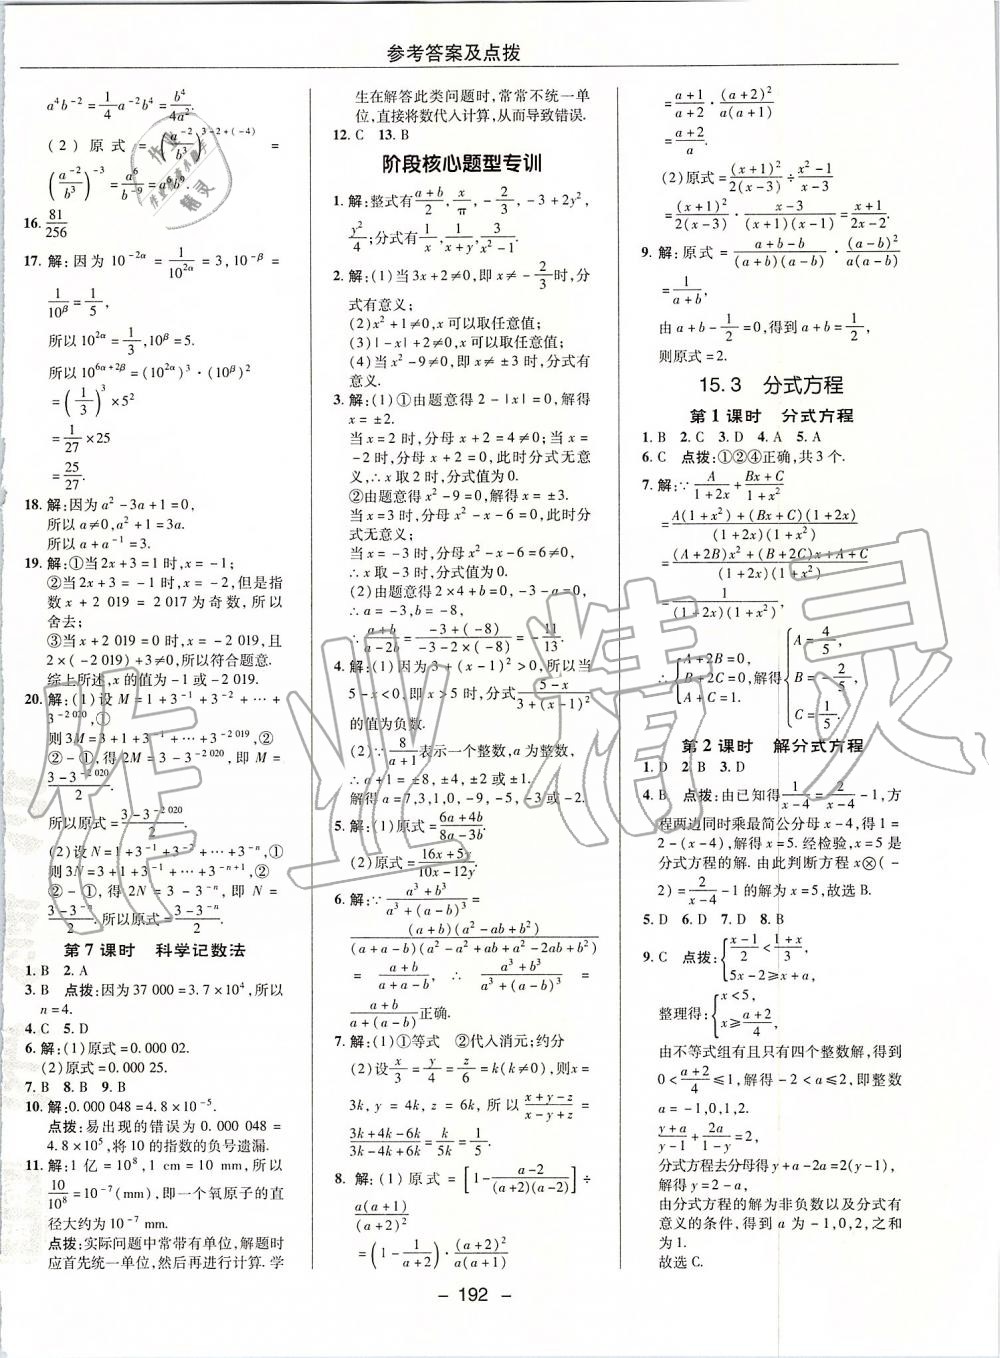 参考答案及点拨
a⁴b⁻² = 1/4 a⁻²b⁴ = b⁴/4a².
(2)原式 = (a⁻²/b³)^(3-2+(-4)) =
(a⁻²/b³)⁻³ = a⁶/b⁻⁹ = a⁶b⁹.
16. 81/256
17. 解:因为 10^(-2α) = 1/10^(2α) = 3,10^(-β) =
1/10^β = 1/5,
所以 10^(2α) = 1/3,10^β = 5.
所以 10^(6α+2β) = (10^(2α))³·(10^β)²
= (1/3)³ × 5²
= 1/27 × 25
= 25/27.
18. 解:因为 a² - 3a + 1 = 0,
所以 a≠0,a² + 1 = 3a.
所以 a + a⁻¹ = 3.
19. 解:①当 2x + 3 = 1 时,x = -1;
②当 2x + 3 = -1 时,x = -2,但是指
数 x + 2 019 = 2 017 为奇数,所以
舍去;
③当 x + 2 019 = 0 时,x = -2 019,且
2×(-2 019) + 3≠0,所以符合题意.
综上所述,x 的值为 -1 或 -2 019.
20. 解:(1)设 M = 1 + 3⁻¹ + 3⁻² + … +
3^(-2 020),①
则 3M = 3 + 1 + 3⁻¹ + … + 3^(-2 019),②
② - ①,得 2M = 3 - 3^(-2 020),即 M =
(3 - 3^(-2 020))/2.
所以原式 = (3 - 3^(-2 020))/2.
(2)设 N = 1 + 3⁻¹ + 3⁻² + … + 3⁻ⁿ,①
则 3N = 3 + 1 + 3⁻¹ + … + 3^(-n+1),②
② - ①得 2N = 3 - 3⁻ⁿ,即 N =
(3 - 3⁻ⁿ)/2. 所以原式 = (3 - 3⁻ⁿ)/2.
第 7 课时 科学记数法
1. B 2. A
3. B 点拨:因为 37 000 = 3.7 × 10⁴,所以
n = 4.
4. C 5. D
6. 解:(1)原式 = 0.000 02.
(2)原式 = 0.000 25.
7. B 8. B 9. B
10. 解:0.000 048 = 4.8 × 10⁻⁵.
点拨:易出现的错误为 0.000 048 =
4.8 × 10⁵,将 10 的指数的负号遗漏.
11. 解:1 亿 = 10⁸,1 cm = 10 mm,所以
10/10⁸ = 10⁻⁷(mm),即一个氧原子的直
径大约为 10⁻⁷ mm.
点拨:实际问题中常带有单位,解题时
应首先统一单位,然后再进行计算. 学
生在解答此类问题时,常常不统一单
位,直接将数代入计算,从而导致错误.
12. C 13. B
阶段核心题型专训
1. 解:整式有 (a+b)/2, x/π, -2/3, -3 + 2y²,
y²/4;分式有 1/x, 1/(x+y), x³/(x²-1).
2. 解:(1)当 3x + 2≠0,即 x≠ -2/3 时,分
式有意义;
(2)x² + 1≠0,x 可以取任意值;
(3)|-x| + 2≠0,x 可以取任意值;
(4)当 x² - 9≠0,即 x≠ ±3 时,分式有
意义.
3. 解:(1)①由题意得 2 - |x| = 0,解得
x = ±2.
当 x = 2 时,分母 x + 2 = 4≠0;当 x =
-2 时,分母 x + 2 = 0,此时分式无意
义,∴x 取 2 时,分式值为 0.
②由题意得 x² - 9 = 0,解得 x = ±3.
当 x = 3 时,分母 x² - x - 6 = 0,此时分
式无意义;
当 x = -3 时,分母 x² - x - 6 = 6≠0,
∴x 取 -3 时,分式值为 0.
(2)由题意得 2×4 + b = 0, -3 - a = 0,
∴a = -3,b = -8,
∴(a+b)/(a-2b) = (-3+(-8))/(-3-2×(-8)) = -11/13.
4. 解:(1)因为 3 + (x - 1)² > 0,所以当
5 - x < 0,即 x > 5 时,分式 (5-x)/(3+(x-1)²)
的值为负数.
(2)∵8/(a+1) 表示一个整数,a 为整数,
∴a + 1 = ±8, ±4, ±2, ±1.
解得 a = 7,3,1,0, -9, -5, -3 或 -2.
5. 解:(1)原式 = (6a+4b)/(8a-3b).
(2)原式 = (16x+5y)/(10x-12y).
6. 解:∵(a³+b³)/(a³+(a-b)³) =
(a+b)(a²-ab+b²)/((a+a-b)(a²-a²+ab+a²-2ab+b²))
= (a+b)/(a+a-b), ∴ (a³+b³)/(a³+(a-b)³) =
(a+b)/(a+(a-b)) 正确.
7. 解:(1)①等式 ②代入消元;约分
(2)设 x/3 = y/4 = z/6 = k(k≠0),则 x =
3k,y = 4k,z = 6k,所以 (x+y-z)/(x-y+z) =
(3k+4k-6k)/(3k-4k+6k) = k/5k = 1/5.
8. 解:(1)原式 = [1 - (a-2)/((a+2)(a-2))] ÷
a(a+1)/(a+2)²
= (1 - 1/(a+2))·(a+2)²/a(a+1)
= (a+1)/(a+2)·(a+2)²/a(a+1)
= (a+2)/a.
(2)原式 = (x+1)²/2(x-3) ÷ (x²-1)/(x-3)
= (x+1)²/2(x-3)·(x-3)/((x+1)(x-1)) = (x+1)/(2x-2).
9. 解:原式 = (a+b-b)/((a+b)(a-b))·(a-b)²/a(a-b)
= 1/(a+b),
由 a + b - 1/2 = 0,得到 a + b = 1/2,
则原式 = 2.
15.3 分式方程
第 1 课时 分式方程
1. B 2. C 3. D 4. A 5. A
6. C 点拨:①②④正确,共 3 个.
7. 解:∵A/(1+2x) + (Bx+C)/(1+x²)
= (A(1+x²)+(Bx+C)(1+2x))/((1+2x)(1+x²))
= ((A+2B)x²+(B+2C)x+A+C)/((1+2x)(1+x²))
= 1/((1+2x)(1+x²)),
∴{A + 2B = 0, B + 2C = 0, A + C = 1. 解得{A = 4/5, B = -2/5, C = 1/5.
第 2 课时 解分式方程
1. D 2. B 3. D
4. B 点拨:由已知得 1/(x-4) = 2/(x-4) - 1,方
程两边同时乘最简公分母 x - 4,得 1 =
2 - (x - 4),解得 x = 5. 经检验,x = 5 是
分式方程的解. 由此判断方程 x⊗( -
2) = 2/(x-4) - 1 的解为 x = 5,故选 B.
5. D 6. D 7. D 8. B
9. C 点拨:{(x-1)/2 < (1+x)/3, 5x - 2≥x + a,
整理得:{x < 5, x≥(a+2)/4.
由不等式组有且只有四个整数解,得到
0 < (a+2)/4 ≤1,解得 -2 < a≤2,即整数
a = -1,0,1,2.
(y+a)/(y-1) + 2a/(1-y) = 2,
分式方程去分母得 y + a - 2a = 2(y - 1),
解得 y = 2 - a,
由分式方程的解为非负数以及分式有
意义的条件,得到 a 为 -1,0,2,之和
为 1.
故选 C.
- 192 -
作业精灵